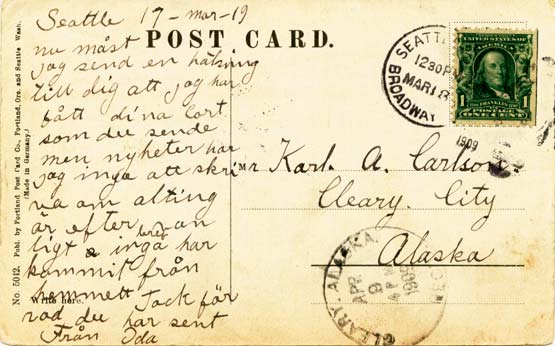 Seattle 17-mar-19
nu måst
jag send en hälsning
till dig att jag har
fått dina cort
som du sende
men nyheter har
jag inga att skri
va om alting
är efter van
ligt inga har
kommit från
hemmett Tack för
rod du har sent
Från Ida
POST CARD.
No. 5012. Publ. by Portland Post Card Co., Portland, Ore. and Seattle Wash.
(Made in Germany.)
Write here.
SEATTLE
1230 PM
MAR 18
BROADWAY
1909
UNITED STATES OF AMERICA
FRANKLIN
POSTAGE
ONE CENT
1
Mr Karl. A. Carlson
Cleary. City
Alaska
CLEARY, ALASKA.
APR
9
4 PM
1909
REC'D